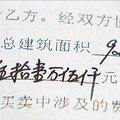 乙方。经双方
总建筑面积 90
拾壹万伍仟元
买卖中涉及的费